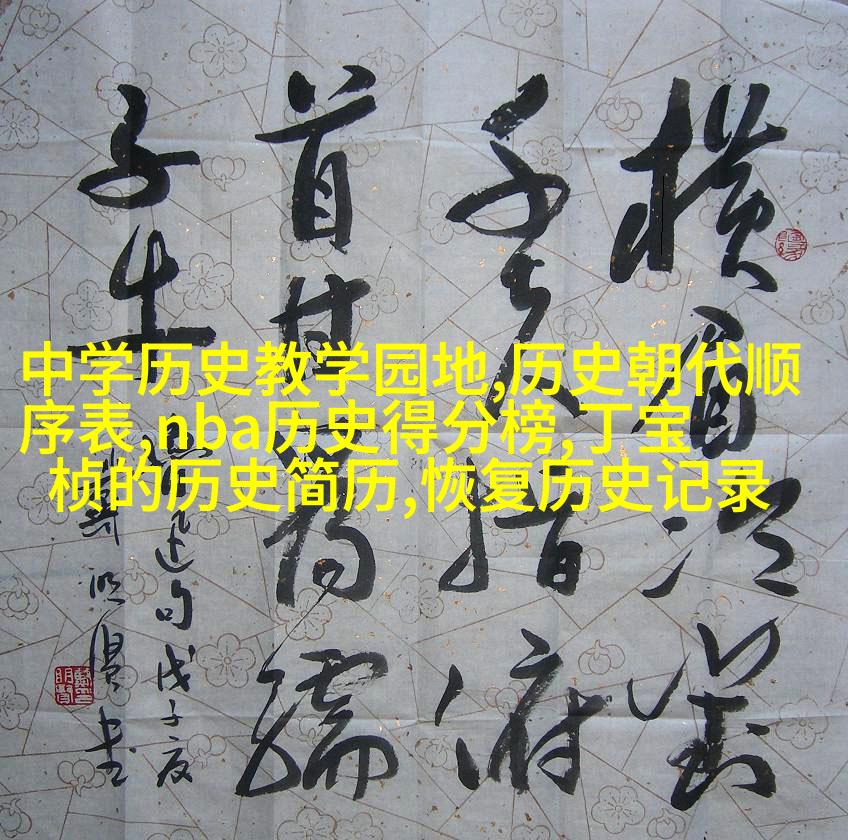 中学历史教学园地,历史朝代顺
序表,nba历史得分榜,丁宝
桢的历史简历,恢复历史记录
横眉冷對
千夫指俯
首甘為孺
子牛
魯迅句戊子夏
明書